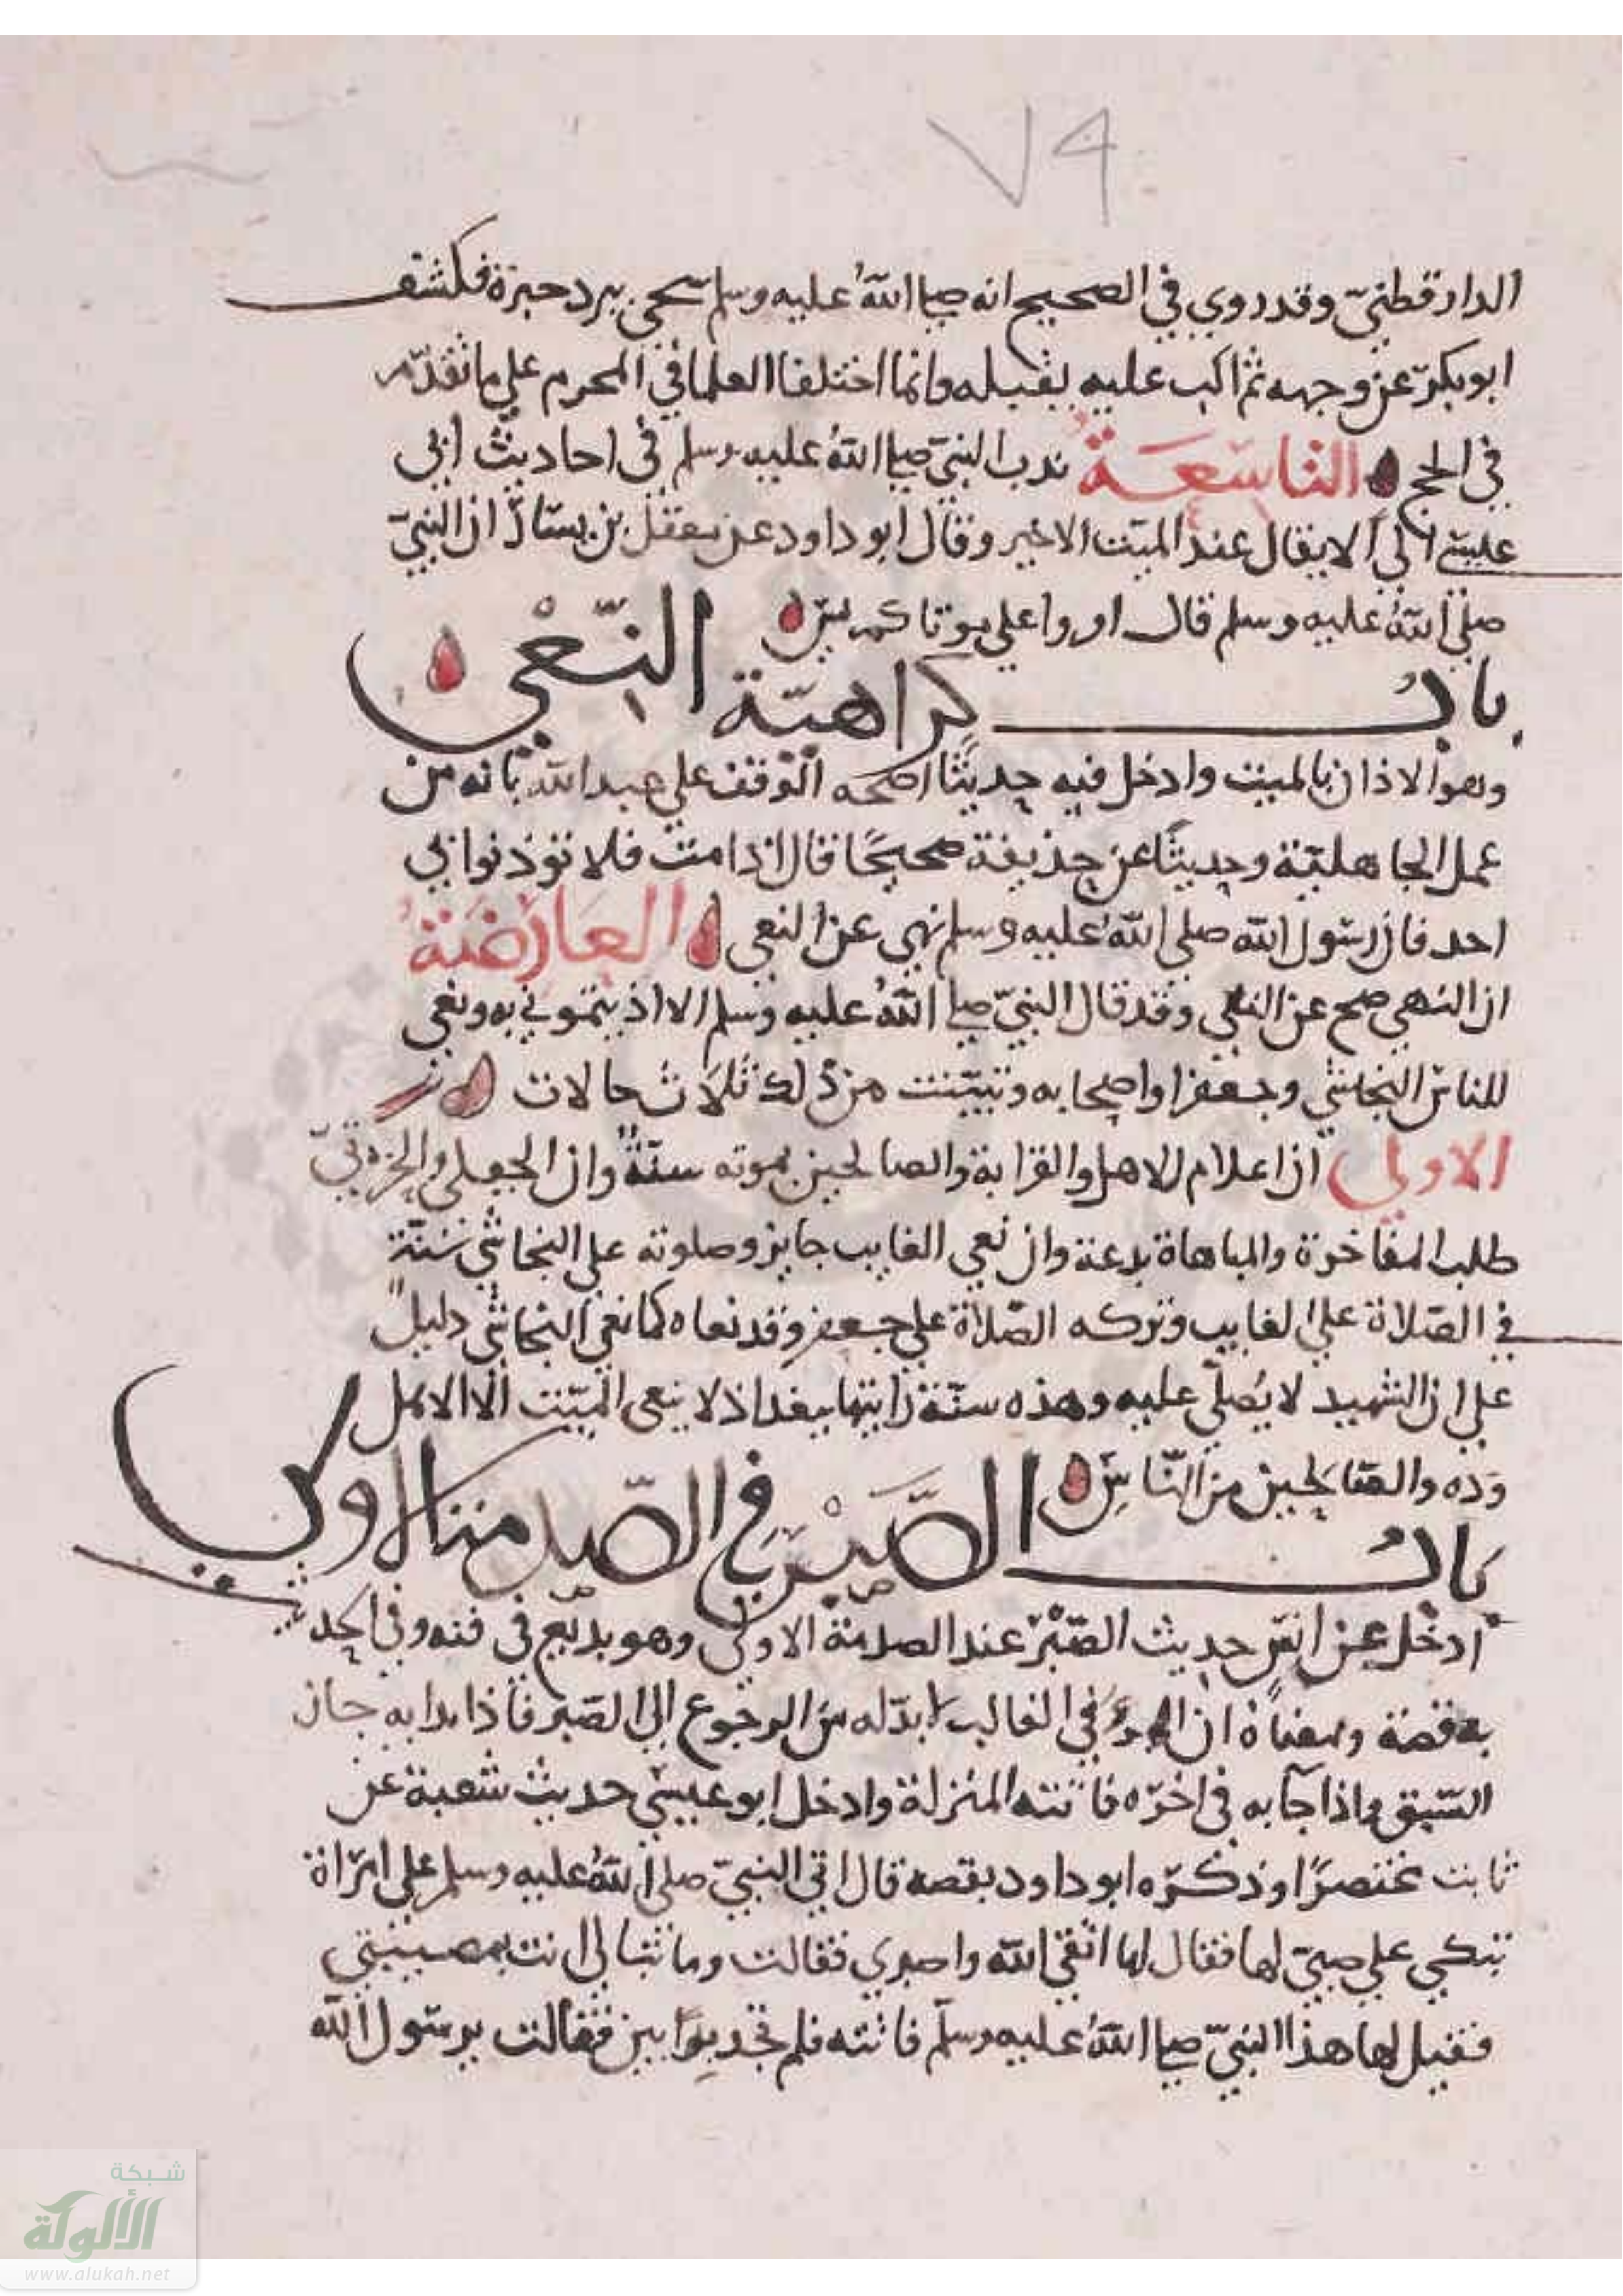 ٧٩
الدارقطنيّ وقد روي في الصحيح انه صلى اللهُ عليه وسلم سُجي ببرد حبرة فكشف
ابو بكر عن وجهه ثم اكب عليه يقبله وانما اختلف العلما في المحرم على ما تقدّم
في الحج التاسعة ندب النبيّ صلى اللهُ عليه وسلم في احاديث ابي
عيسى الى الا يقال عند الميّت الا خير وقال ابو داود عن معقل بن يسار ان النبيّ
صلى اللهُ عليه وسلم قال اقروا على موتاكم يس
باب كراهية النعي
وهو الاذان بالميت وادخل فيه حديثا اصحه الوقف على عبد الله بانه من
عمل الجاهليّة وحديثًا عن حذيفة صحيحًا قال اذا مت فلا توذنوا بي
احد فان رسول الله صلى اللهُ عليه وسلم نهى عن النعي العارضة
ان النهي صح عن النعي وقد قال النبيّ صلى اللهُ عليه وسلم الا اذنتموني به ونعى
للناس النجاشي وجعفرا واصحابه وتبيّنت من ذلك ثلاث حالات
الاولى ان اعلام الاهل والقرابة والصالحين بموته سنّةٌ وان الجفلى
طلب المفاخرة والمباهاة بدعة وان نعي الغايب جايز وصلوته على النجاشي سنّة
في الصّلاة على الغايب وتركه الصّلاة على جعفر وقد نعاه كما نعى النجاشي دليلٌ
على ان الشهيد لا يُصلّى عليه وهذه سنّة رايتها ببغداذ لا ينعى الميّت الا لاهل
وده والصّالحين من النّاس
باب الصّبر في الصّدمة الاولى
ادخل عن انس حديث الصّبر عند الصدمة الاولى وهو بديع في فنه وفي الحديث
قصة ومعناه ان المرءَ في الغالب لا بدّ له من الرجوع الى الصّبر فاذا بدا به حاز
السّبق واذا جآ به في اخره فاتته المنزلة وادخل ابو عيسى حديث شعبة عن
ثابت مختصرًا وذكره ابو داود بقصه قال اتى النبيّ صلى اللهُ عليه وسلم على امرَاة
تبكي على صبيّ لها فقال لها اتقي الله واصبري فقالت وما تبالي انت بمصيبتي
فقيل لها هذا النبيّ صلى اللهُ عليه وسلم فاتته فلم تجد بوّابين فقالت يرسول الله
شبكة
الألوكة
www.alukah.net